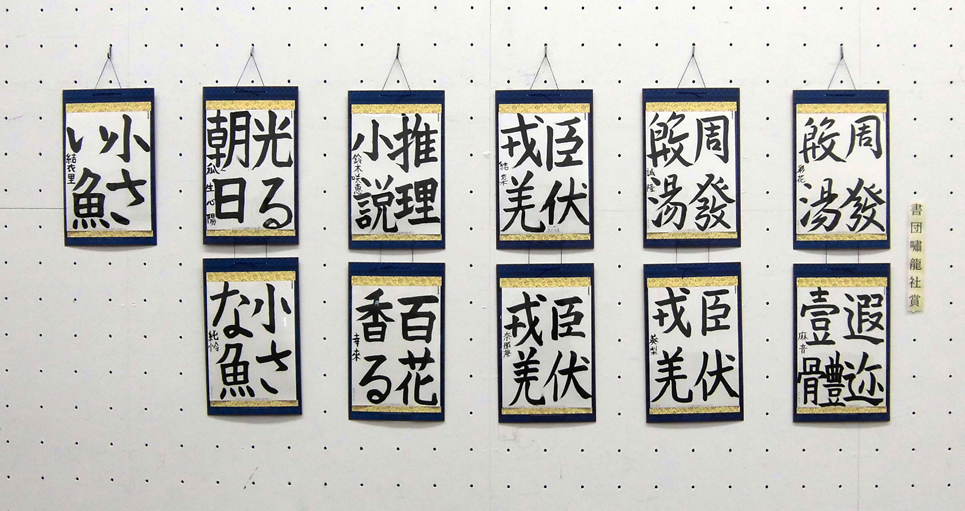 書団嘯龍社賞
周發
殷湯
彩花
遐迩
壹體
麻音
周發
殷湯
誠隆
臣伏
戎羌
葵梨
臣伏
戎羌
結菜
臣伏
戎羌
推理
小説
鈴木咲恵
百花
香る
幸來
光る
朝日
小さ
な魚
紗怜
小さ
い魚
結衣里